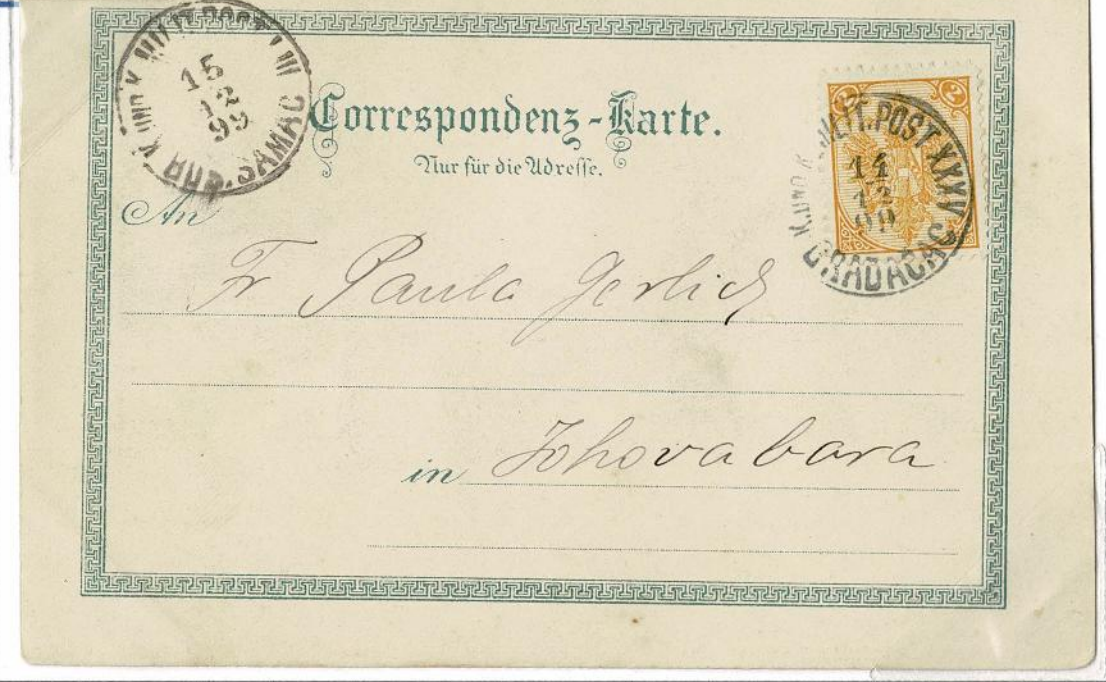 K. UND K. MILIT. POST LIII
15
12
99
BOSN. ŠAMAC
Correspondenz-Karte.
Nur für die Adresse.
2 2
K. UND K. MILIT. POST XXXV
14
12
99
GRADAČAC
An
Fr Paula Gerlich
in Johovabara